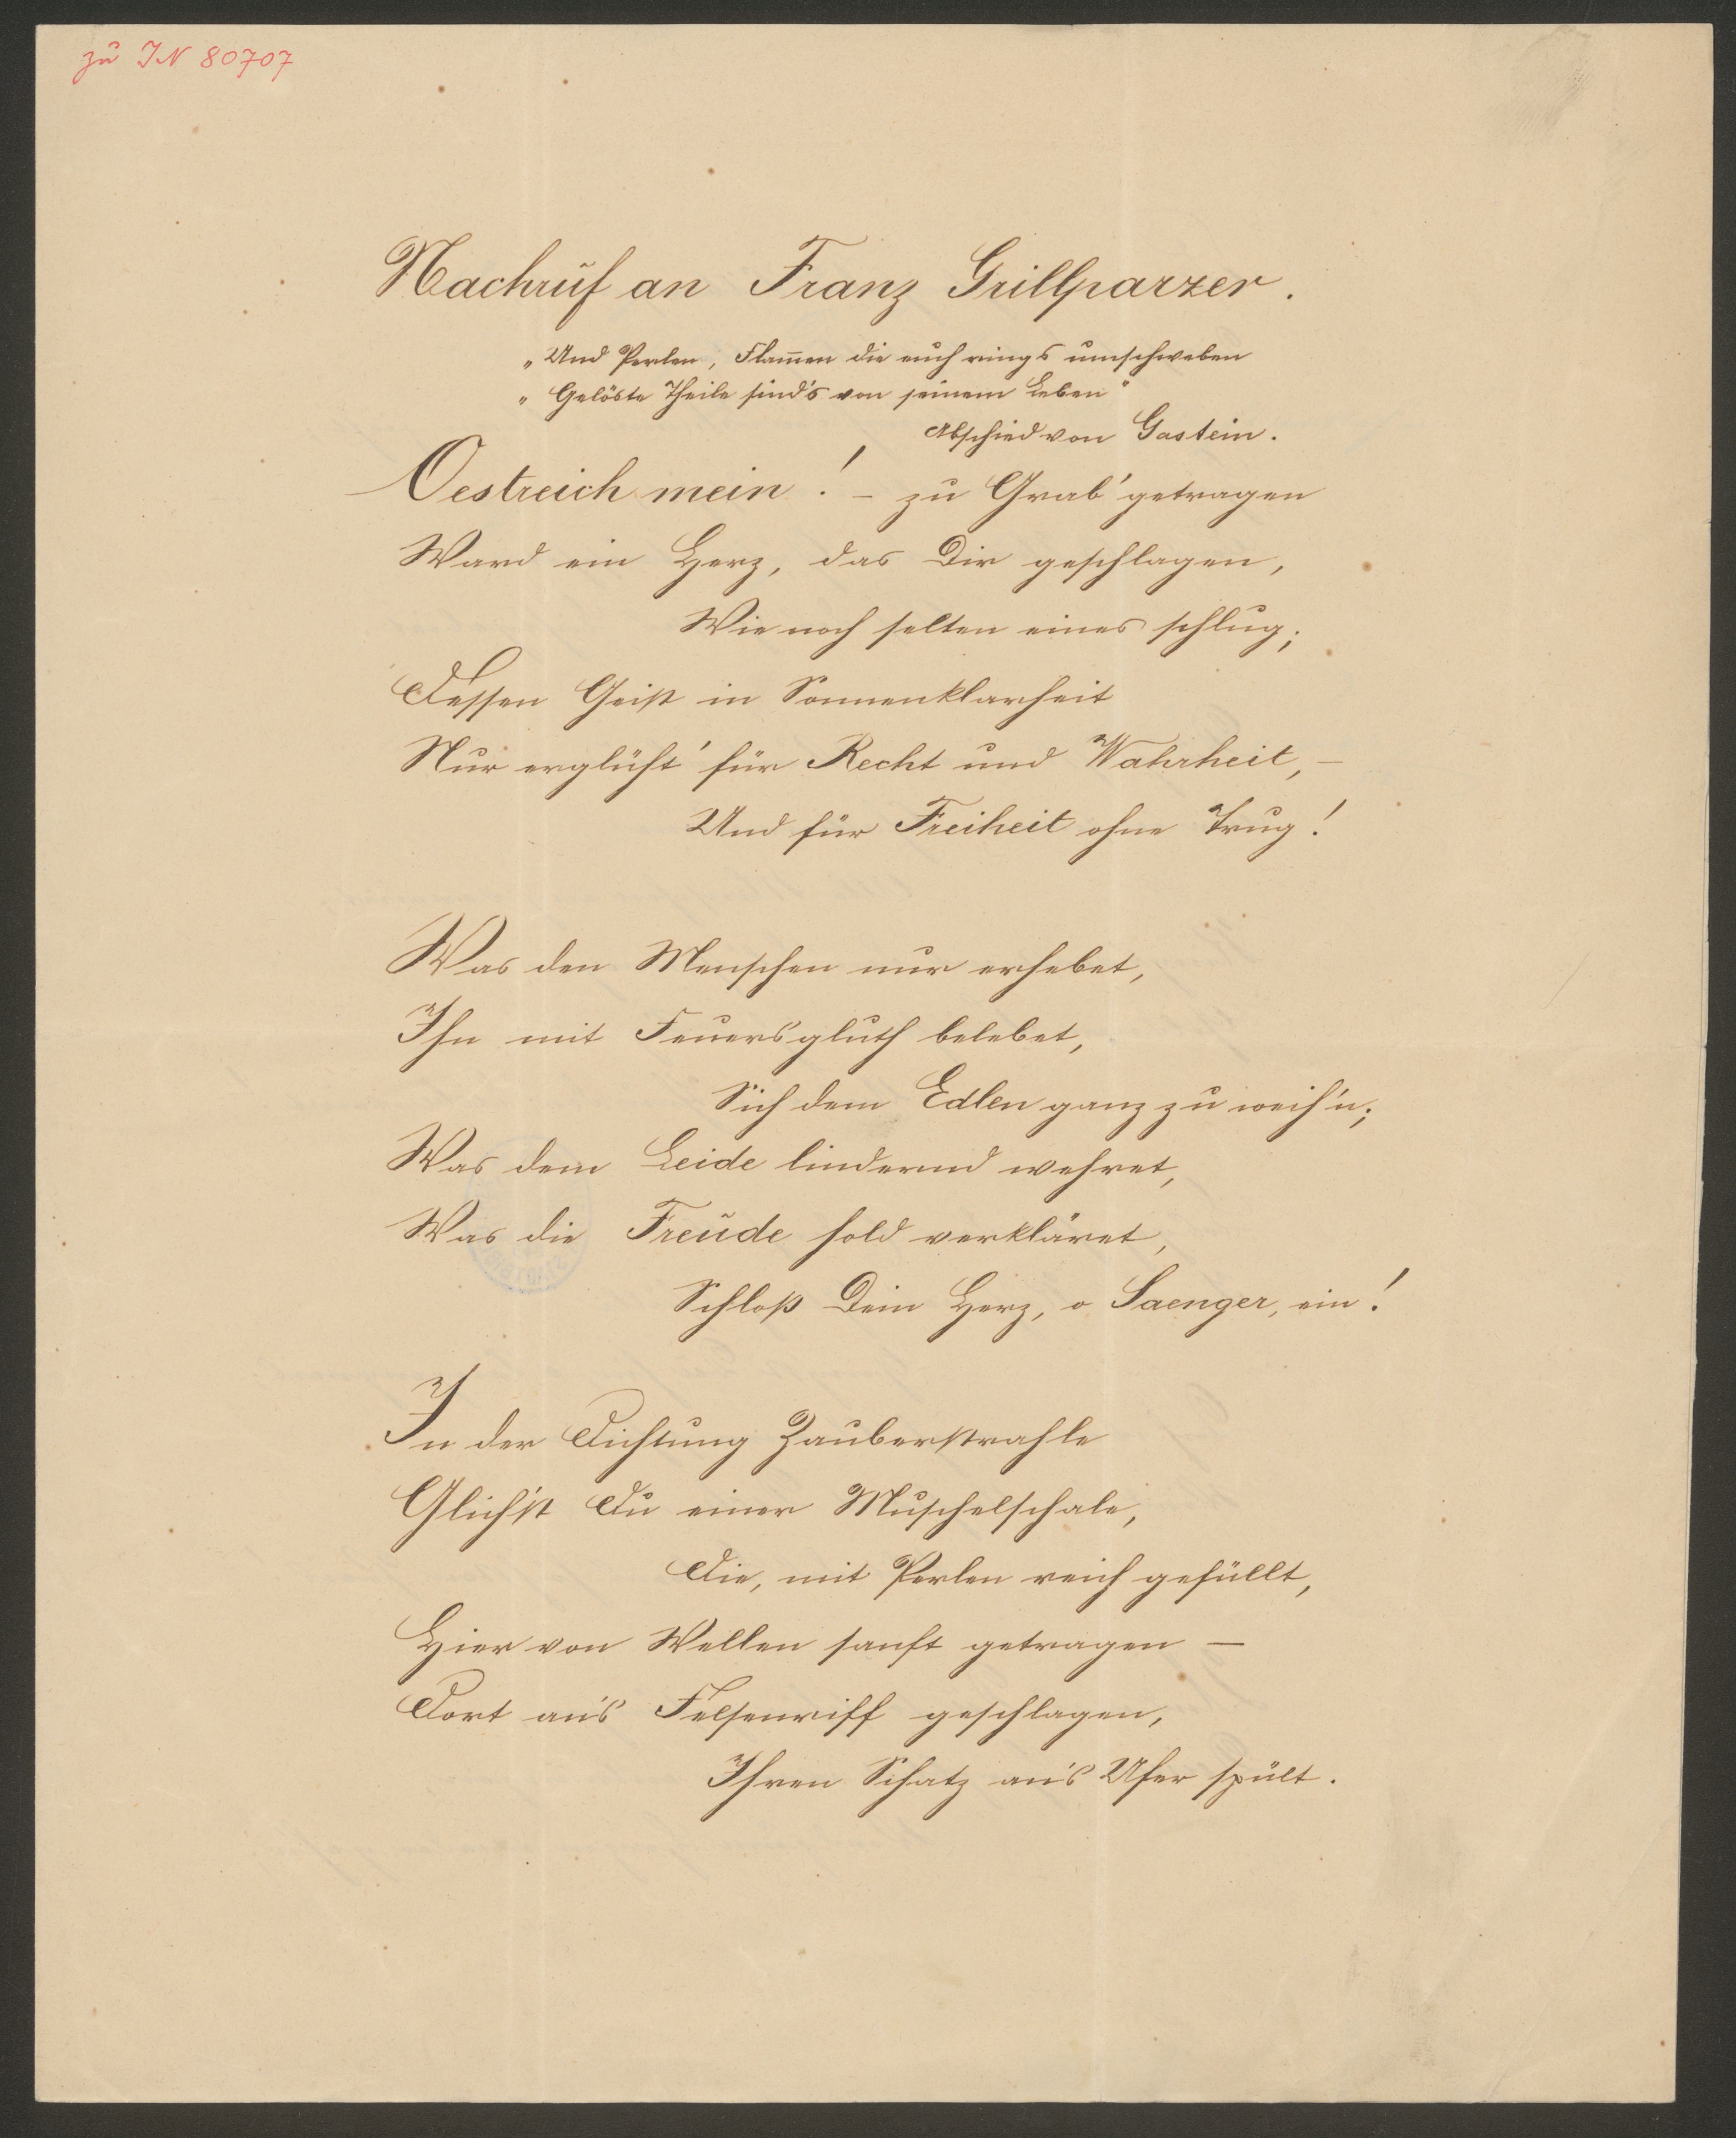 zu IN 80707
Nachruf an Franz Grillparzer.
„Und Perlen, Flam̅en die euch rings umschweben
„Gelöste Theile sind's von seinem Leben"
Abschied von Gastein.
Oestreich mein! – zu Grab' getragen
Ward ein Herz, das Dir geschlagen,
Wie noch selten eines schlug;
Dessen Geist in Sonnenklarheit
Nur erglüht' für Recht und Wahrheit, –
Und für Freiheit ohne Trug!
Was den Menschen nur erhebet,
Ihn mit Feuersgluth belebet,
Sich dem Edlen ganz zu weih'n;
Was dem Leide lindernd wehret,
Was die Freude hold verkläret,
Schloß Dein Herz, o Saenger, ein!
In der Dichtung Zauberstrahle
Glich'st Du einer Muschelschale,
Die, mit Perlen reich gefüllt,
Hier von Wellen sanft getragen –
Dort an's Felsenriff geschlagen,
Ihren Schatz an's Ufer spült.